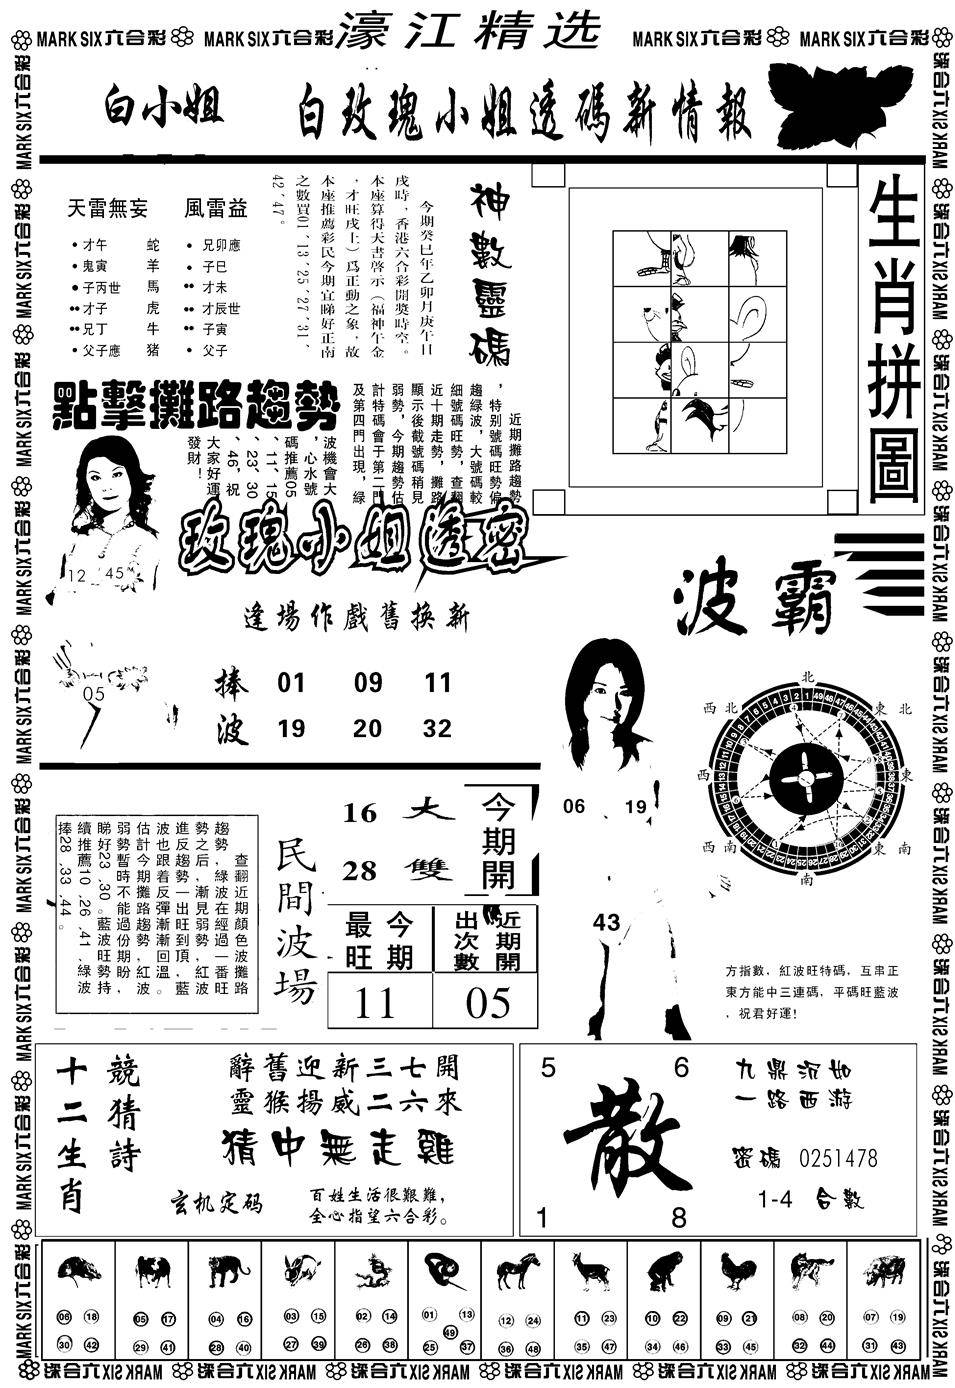 MARK SIX六合彩
MARK SIX六合彩
濠江精选
MARK SIX六合彩
MARK SIX六合彩
白小姐
白玫瑰小姐透碼新情報
天雷無妄
風雷益
才午 蛇
鬼寅 羊
子丙世 馬
才子 虎
兄丁 牛
父子應 豬
兄卯應
子巳
才未
才辰世
子寅
父子
神數靈碼
今期癸巳年乙卯月庚午日
戌時，香港六合彩開獎時空。
本座算得天書啓示（福神午金
，才旺戌上）爲正動之象，故
本座推薦彩民今期宜睇好正南
之數買01，13，25，27，31，
42，47。
生肖拼圖
點擊攤路趨勢
近期攤路趨勢
，特別號碼旺勢偏
趨綠波，大號碼較
細號碼旺勢，查翻
近十期走勢，攤路
顯示後截號碼稍見
弱勢，今期趨勢估
計特碼會于第二門
及第四門出現，綠
波機會大
，心水號
碼推薦05
、11、15
、23、30
、46，祝
大家好運
發財！
12 45
05
玫瑰小姐透密
逢場作戲舊換新
捧 01 09 11
波 19 20 32
波霸
06 19
43
北
東北
東
東南
南
西南
西
西北
方指數，紅波旺特碼，互串正
東方能中三連碼，平碼旺藍波
，祝君好運！
查翻近期顏色波攤路
趨勢，綠波在經過一番旺
勢之后，漸見弱勢，紅波
進反趨勢一出旺到頂，藍
波也跟着反彈漸漸回溫。
估計今期攤路趨勢紅波
弱勢暫時不能過份期盼，
睇好23，30。藍波旺勢持
續推薦10，26，41，綠波
捧28，33，44。
民間波場
16 大
28 雙
今期開
今期最旺
近期開出次數
11
05
十二生肖
競猜詩
辭舊迎新三七開
靈猴揚威二六來
猜中無走雞
玄机定码
百姓生活很艱難，
全心指望六合彩。
5 6
散
1 8
九鼎沉如
一路西游
密碼 0251478
1-4 合數
06 18 05 17 04 16 03 15 02 14 01 13 12 24 11 23 10 22 09 21 08 20 07 19
49
30 42 29 41 28 40 27 39 26 38 25 37 36 48 35 47 34 46 33 45 32 44 31 43